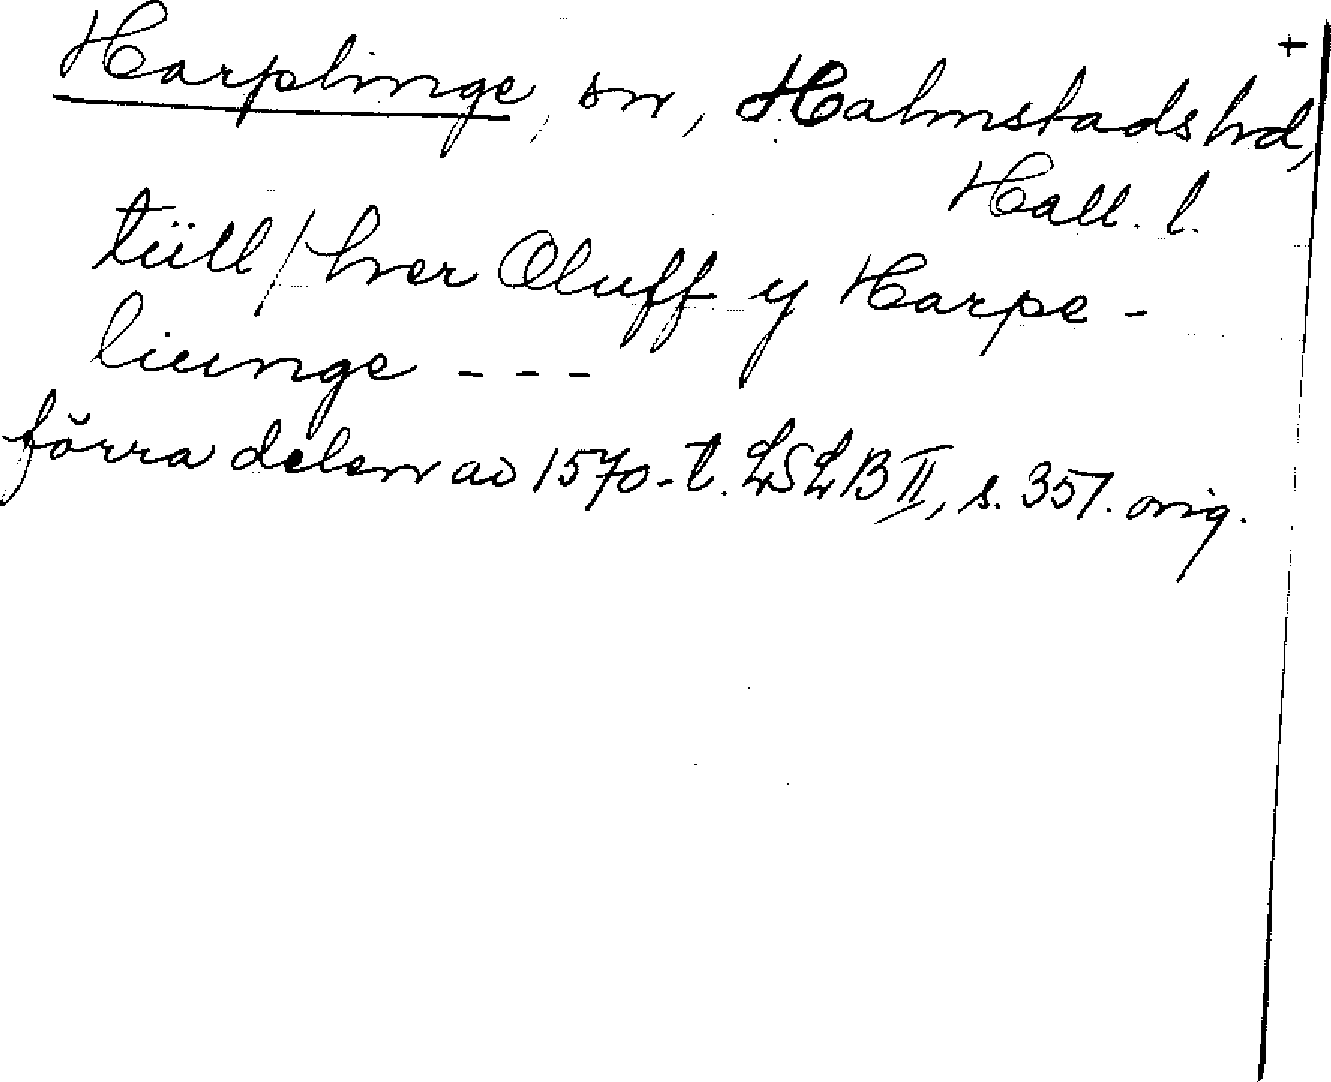 +
Harplinge, sn, Halmstads hd,
Hall. l.
tüll / her Oluff y Harpe-
liunge - - -
förra delen av 1570-t. LSLB II, s. 357. orig.